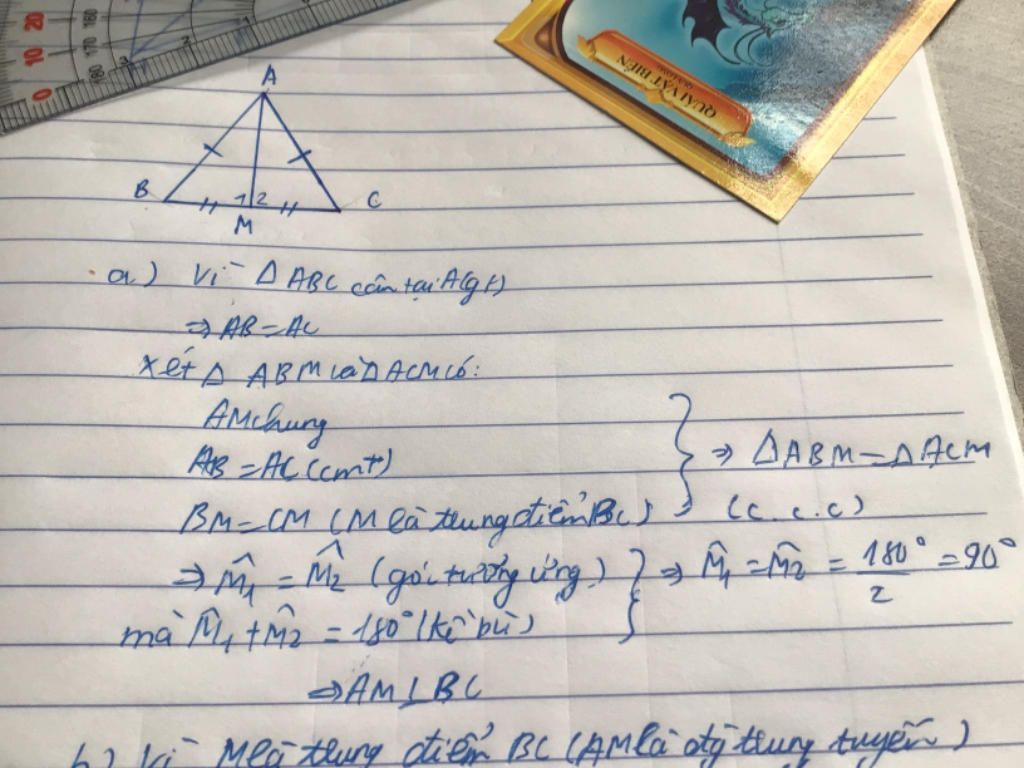 20
10
0
180
170
160
2
3
QUÁI VẬT BIỂN
A
B
1 2
C
M
a) Vì Δ ABC cân tại A(gt)
=> AB = AC
Xét Δ ABM và Δ ACM có:
AM chung
AB = AC (cmt)
BM = CM (M là trung điểm BC)
=> Δ ABM = Δ ACM
(c.c.c)
=> M̂1 = M̂2 (góc tương ứng)
mà M̂1 + M̂2 = 180° (kề bù)
=> M̂1 = M̂2 = 180°/2 = 90°
=> AM ⊥ BC
b) Vì M là trung điểm BC (AM là đg trung tuyến)